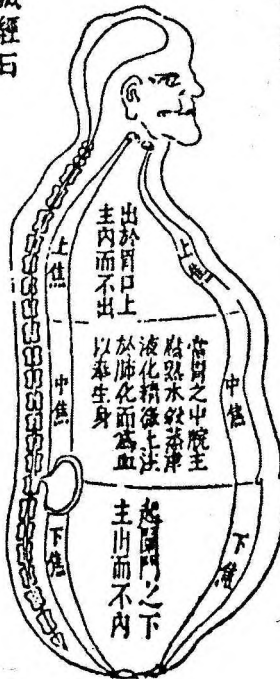 經石
出於胃口上
主內而不出
上焦
上焦
當胃之中脘主
腐熟水穀蒸津
液化精微上注
於肺化而為血
以奉生身
中焦
中焦
起闌門之下
主出而不內
下焦
下焦